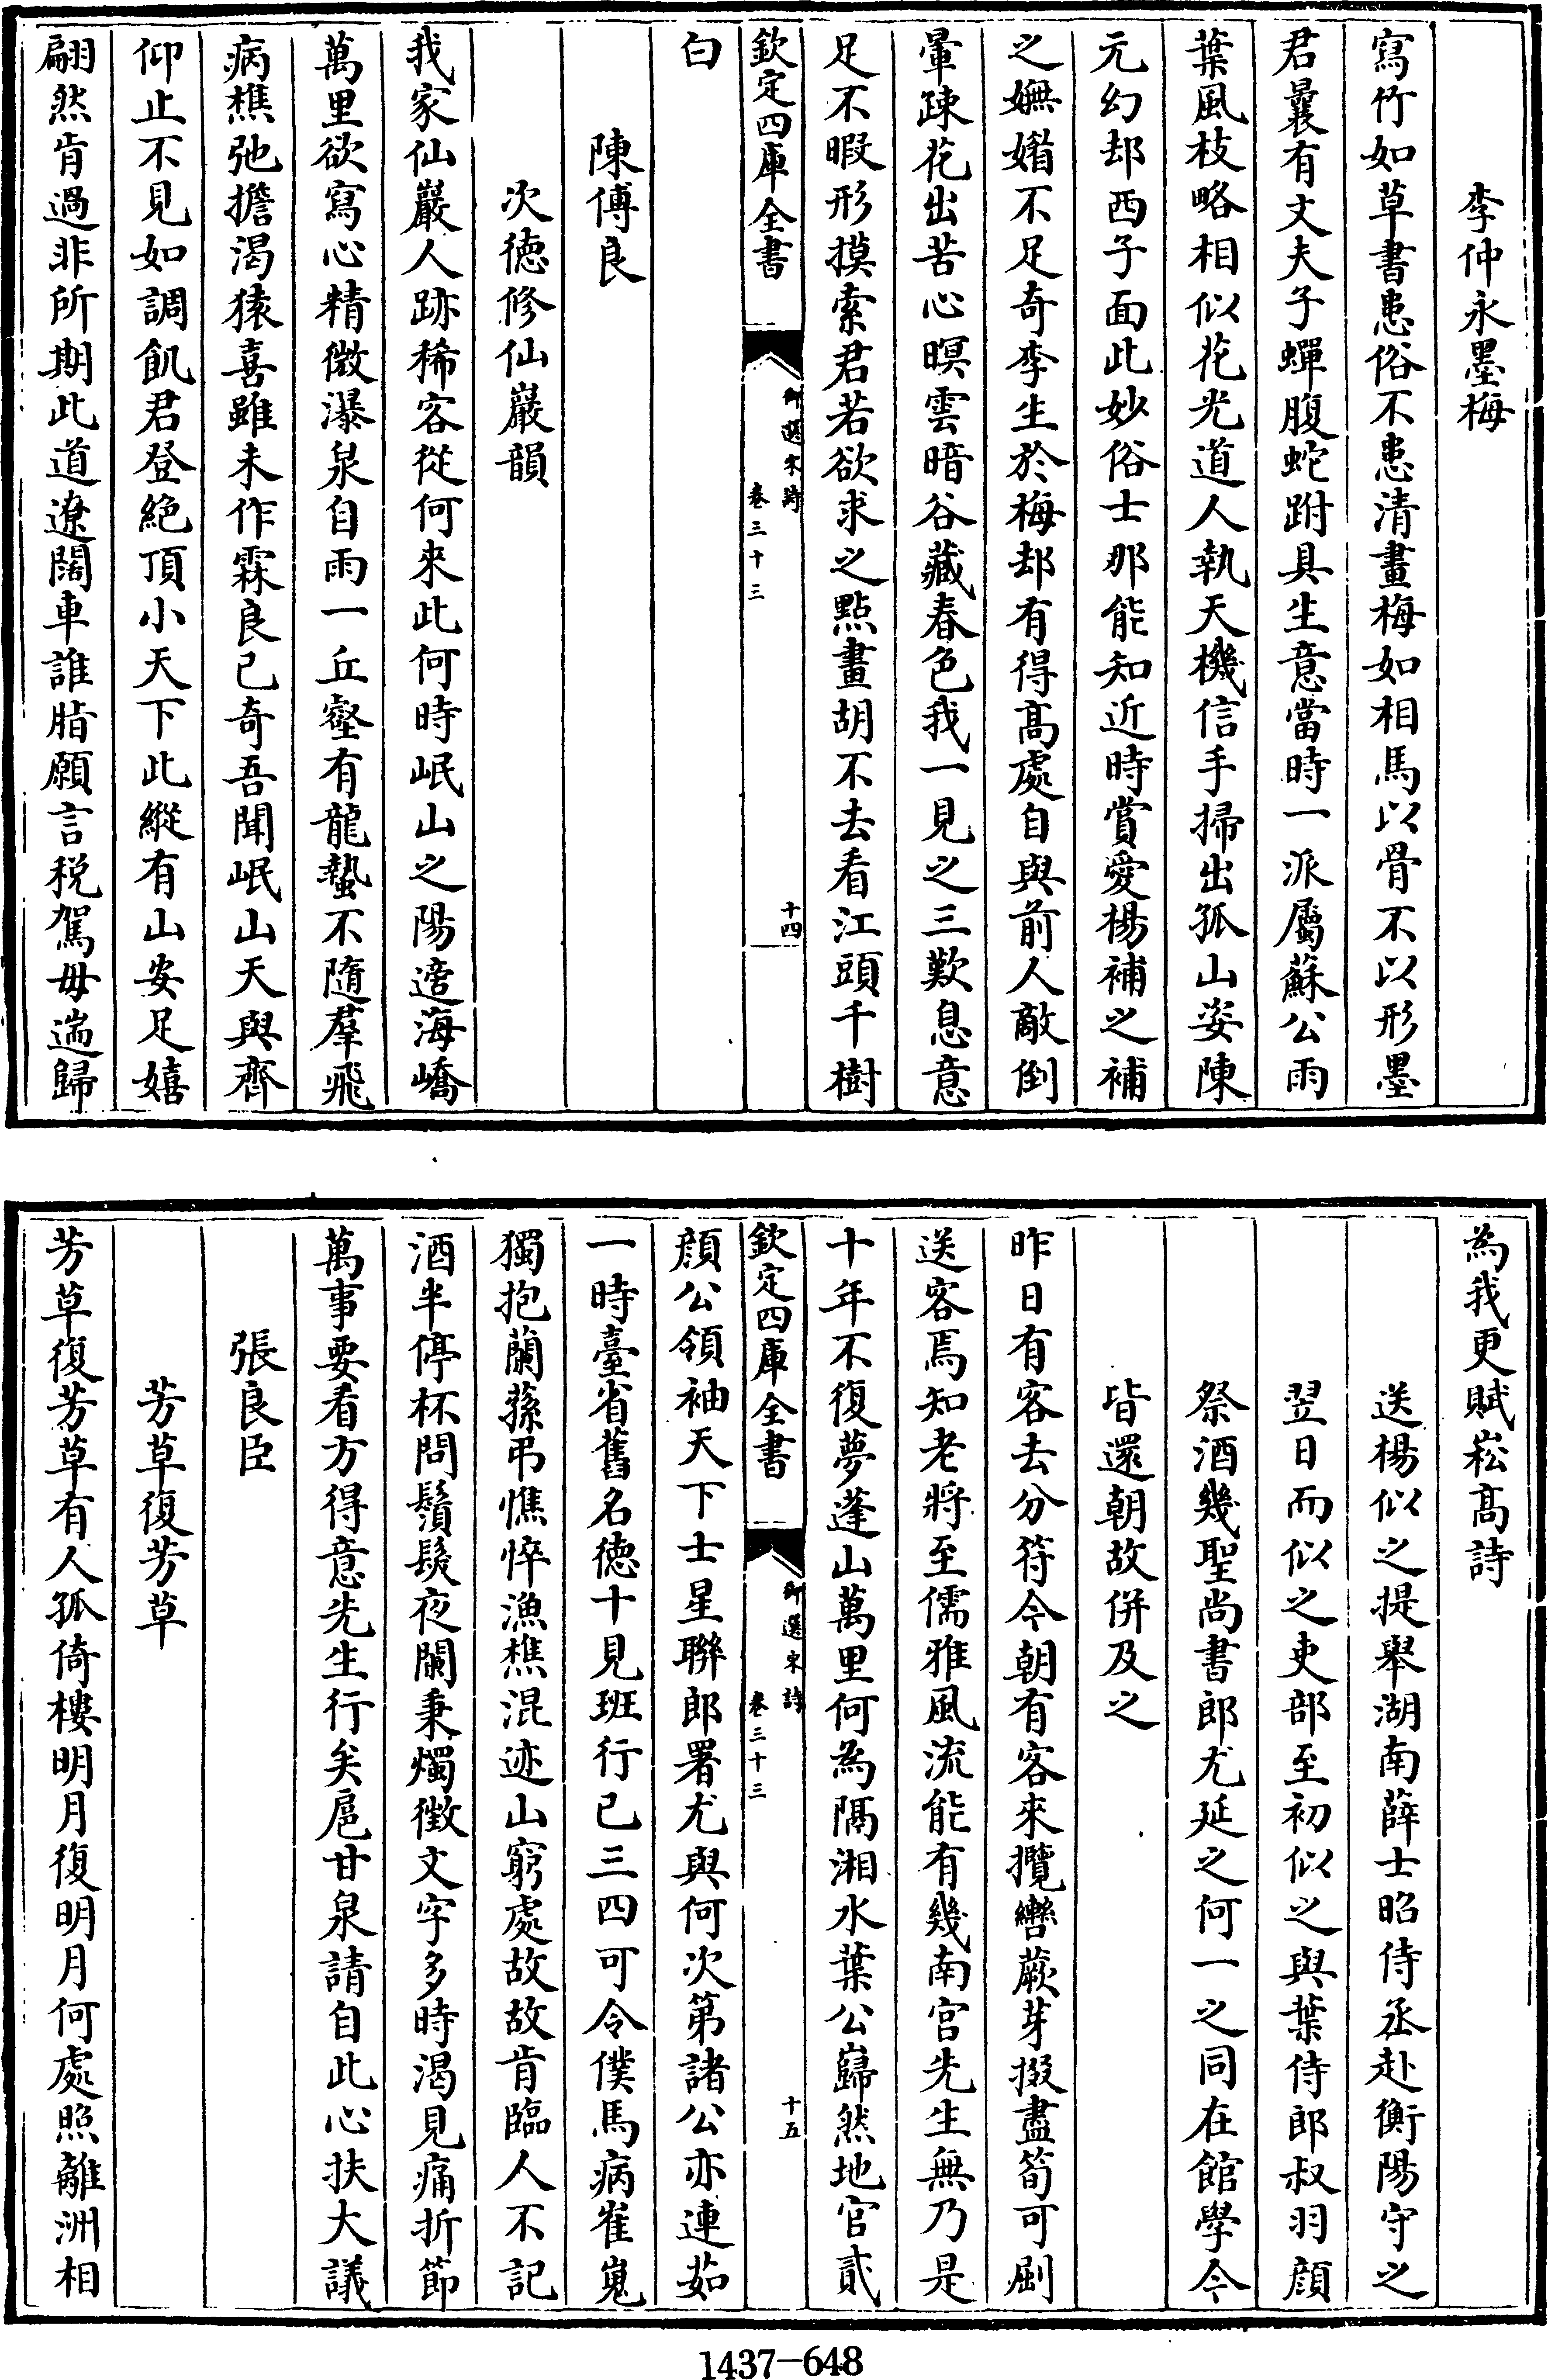 李仲永墨梅
寫竹如草書患俗不患清畫梅如相馬以骨不以形墨
君曩有文夫子蟬腹蛇跗具生意當時一派屬蘇公雨
葉風枝略相似花光道人執天機信手掃出孤山姿陳
元幻却西子面此妙俗士那能知近時賞愛楊補之補
之嫵媚不足奇李生於梅却有得髙處自與前人敵倒
暈疎花出苦心暝雲暗谷藏春色我一見之三歎息意
足不暇形摸索君若欲求之點畫胡不去看江頭千樹
欽定四庫全書
御選宋詩
卷三十三
十四
白
陳傅良
次徳修仙巖韻
我家仙巖人跡稀客從何來此何時岷山之陽遊海嶠
萬里欲寫心精微瀑泉自雨一丘壑有龍蟄不隨羣飛
病樵弛擔渴猿喜雖未作霖良已奇吾聞岷山天與齊
仰止不見如調飢君登絶頂小天下此縱有山安足嬉
翩然肯過非所期此道遼闊車誰脂願言税駕毋遄歸
為我更賦崧髙詩
送楊似之提舉湖南薛士昭侍丞赴衡陽守之
翌日而似之吏部至初似之與葉侍郎叔羽顔
祭酒幾聖尚書郎尤延之何一之同在館學今
皆還朝故併及之
昨日有客去分符今朝有客來攬轡蕨芽掇盡筍可劚
送客焉知老將至儒雅風流能有幾南宫先生無乃是
十年不復夢蓬山萬里何為隔湘水葉公巋然地官貳
欽定四庫全書
御選宋詩
卷三十三
十五
顔公領袖天下士星聯郎署尤與何次第諸公亦連茹
一時臺省舊名徳十見班行已三四可令僕馬病崔嵬
獨抱蘭蓀弔憔悴漁樵混迹山窮處故故肯臨人不記
酒半停杯問鬚髮夜闌秉燭徴文字多時渴見痛折節
萬事要看方得意先生行矣扈甘泉請自此心扶大議
張良臣
芳草復芳草
芳草復芳草有人孤倚樓明月復明月何處照離洲相
1437-648